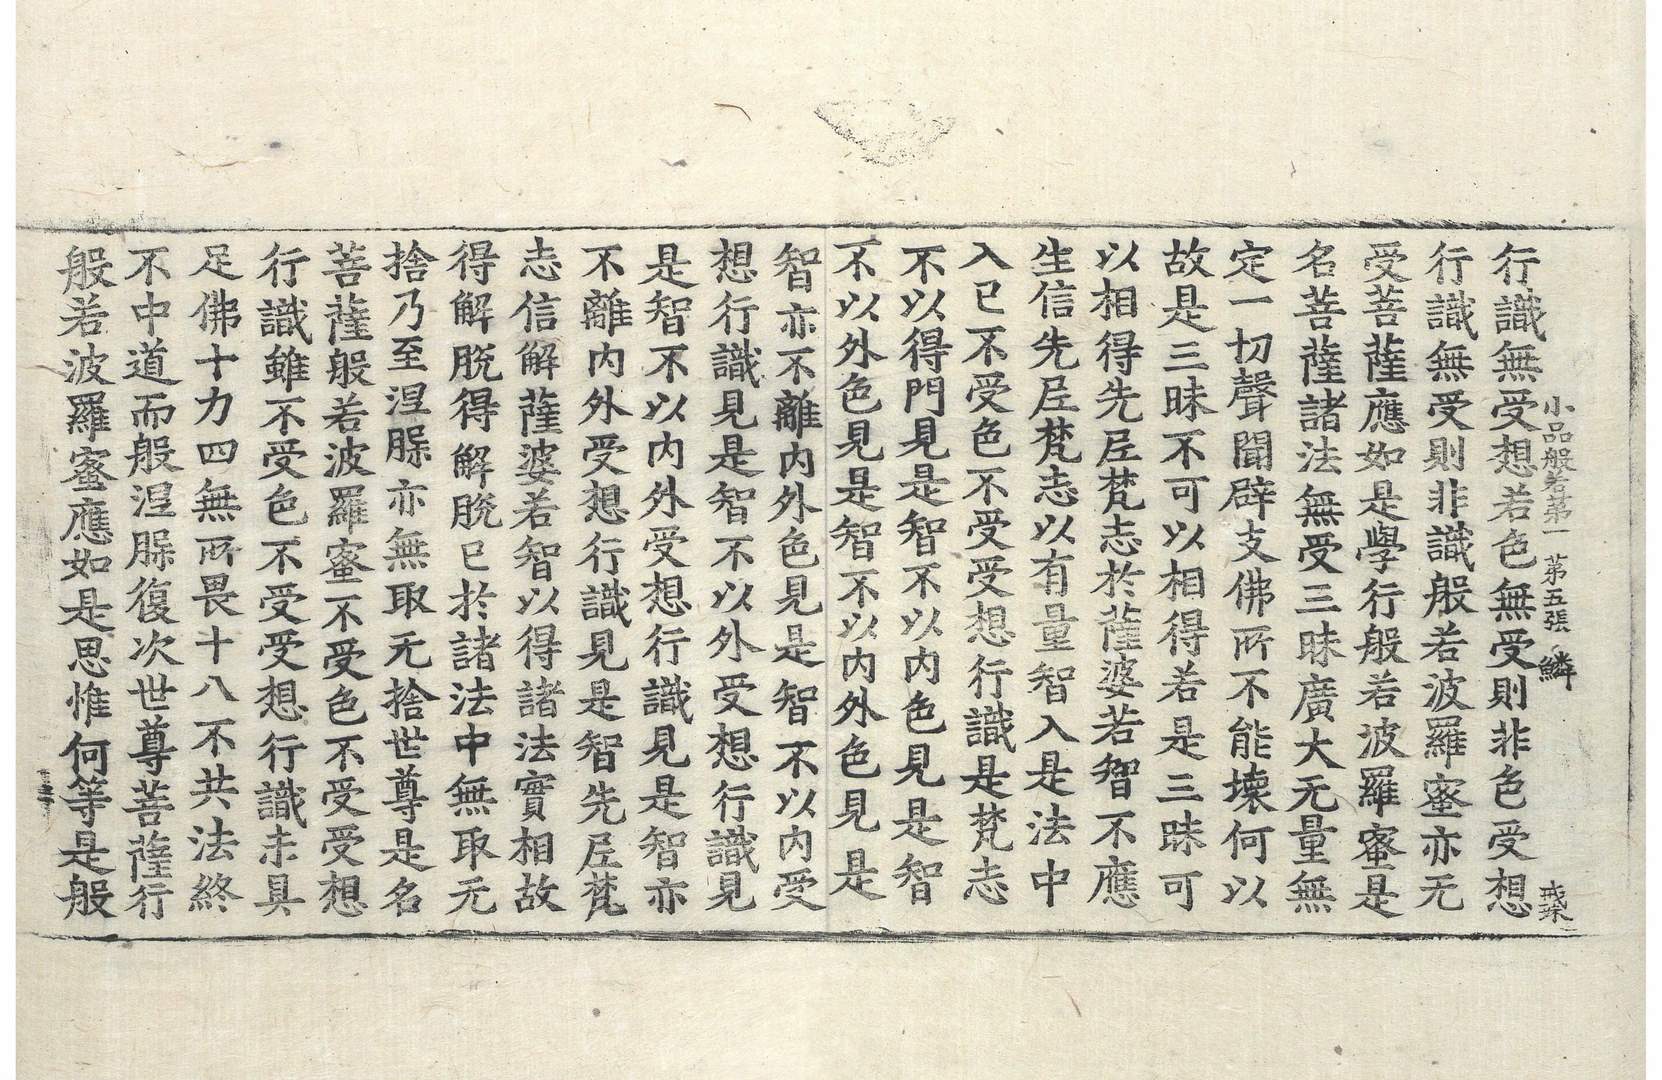 小品般若第一 第五張 鱗 戒柒
行識無受想若色無受則非色受想
行識無受則非識般若波羅蜜亦无
受菩薩應如是學行般若波羅蜜是
名菩薩諸法無受三昧廣大无量無
定一切聲聞辟支佛所不能壞何以
故是三昧不可以相得若是三昧可
以相得先尼梵志於薩婆若智不應
生信先尼梵志以有量智入是法中
入已不受色不受受想行識是梵志
不以得門見是智不以内色見是智
不以外色見是智不以内外色見是
智亦不離内外色見是智不以内受
想行識見是智不以外受想行識見
是智不以内外受想行識見是智亦
不離内外受想行識見是智先尼梵
志信解薩婆若智以得諸法實相故
得解脫得解脫已於諸法中無取无
捨乃至涅槃亦無取无捨世尊是名
菩薩般若波羅蜜不受色不受受想
行識雖不受色不受受想行識未具
足佛十力四無所畏十八不共法終
不中道而般涅槃復次世尊菩薩行
般若波羅蜜應如是思惟何等是般